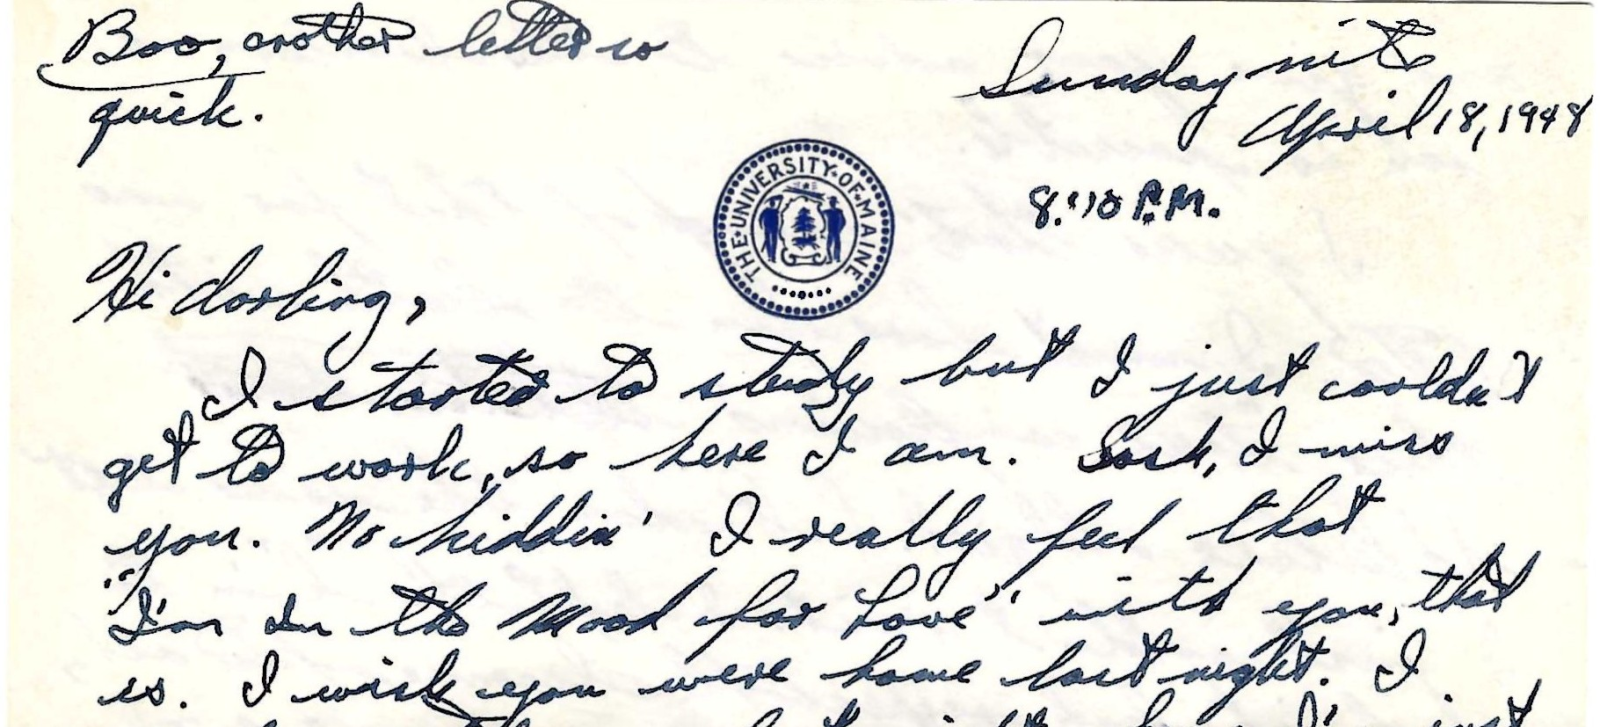 Boo, another letter so
quick.
Sunday nite
April 18, 1948
8:10 P.M.
THE·UNIVERSITY·OF·MAINE
Hi darling,
I started to study but I just couldn't
get to work, so here I am. Gosh, I miss
you. No kiddin' I really feel that
"I'm In the Mood for Love" with you, that
is. I wish you were home last night. I